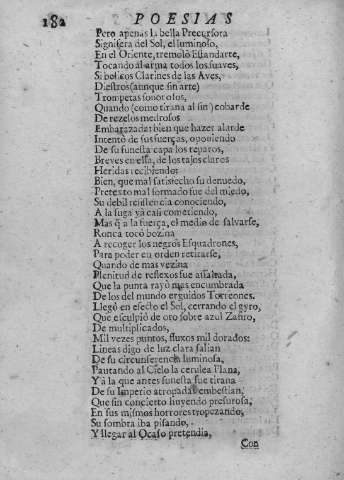 182 POESIAS
Pero apenas la bella Precursora
Signifera del Sol, el luminoso,
En el Oriente, tremolò Estandarte,
Tocando al arma todos los suaves,
Si belicos Clarines de las Aves,
Diestros (aunque sin arte)
Trompetas sonorosos,
Quando (como tirana al fin) cobarde
De rezelos medrosos
Embarazada: bien que hazer alarde
Intentò de sus fuerças, oponiendo
De su funesta capa los reparos,
Breves en essa, de los tajos claros
Heridas recibiendo:
Bien, que mal satisfecho su denuedo,
Pretexto mal formado fue del miedo,
Su debil resistencia conociendo,
A la fuga yà casi cometiendo,
Mas q̃ a la fuerça, el medio de salvarse,
Ronca tocò bozina
A recoger los negros Esquadrones,
Para poder en orden retirarse,
Quando de mas vezina
Plenitud de reflexos fue assaltada,
Que la punta rayò mas encumbrada
De los del mundo erguidos Torreones.
Llegò en efecto el Sol, cerrando el gyro,
Que esculpiò de oro sobre azul Zafiro,
De multiplicados,
Mil vezes puntos, fluxos mil dorados:
Lineas digo de luz clara salian
De su circunferencia luminosa,
Pautando al Cielo la cerulea Plana,
Y à la que antes funesta fue tirana
De su Imperio atropadas embestian,
Que sin concierto huyendo presurosa,
En sus mismos horrores tropezando,
Su sombra iba pisando,
Y llegar al Ocaso pretendia,
Con